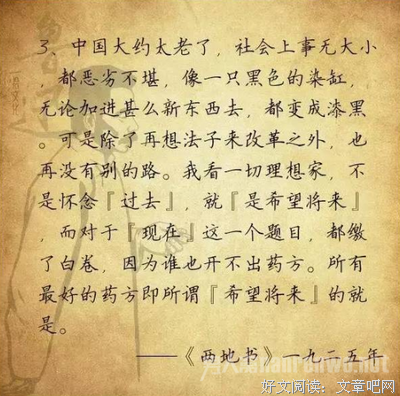 3、中国大约太老了，社会上事无大小
，都恶劣不堪，像一只黑色的染缸，
无论加进甚么新东西去，都变成漆黑
。可是除了再想法子来改革之外，也
再没有别的路。我看一切理想家，不
是怀念『过去』，就『是希望将来』
，而对于『现在』这一个题目，都缴
了白卷，因为谁也开不出药方。所有
最好的药方即所谓『希望将来』的就
是。
——《两地书》一九二五年
好文阅读：文章吧网